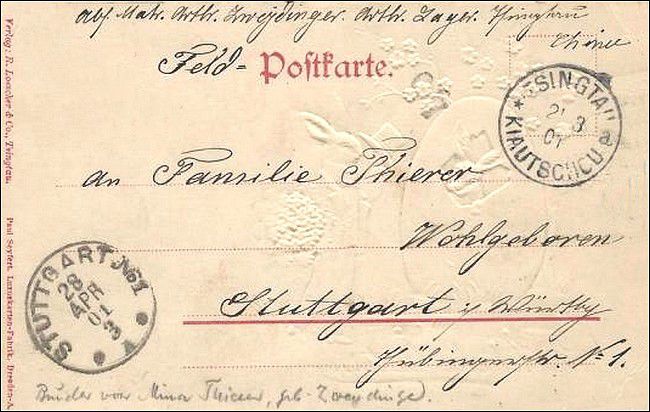 Abs. Matr. Arth. Zweydinger. Arth. Lager. Tsingtau
China
Feld- Postkarte.
*TSINGTAU a
21 3
01
KIAUTSCHOU
an Familie Thierer
Wohlgeboren
Stuttgart i/ Württbg
Tübingerstr. No 1.
STUTTGART No 1
28
APR
01
3
A
Bruder von Minna Thierer, geb. Zweydinger.
Verlag: R. Loescher & Co., Tsingtau.
Paul Seyfert, Luxuskarten-Fabrik, Dresden-A.